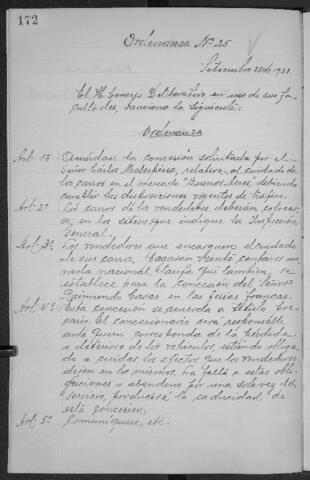 172
Ordenanza No. 25
Setiembre 28 de 1921
El H. Concejo Deliberativo, en uso de sus fa-
cultades, sanciona la siguiente:
Ordenanza
Art. 1º Acuérdase la concesión solicitada por el
Señor Carlos relativa al cuidado de
los carros en el mercado "Buenos Aires", debiendo
las disposiciones vigentes de tráfico.
Art. 2º Los carros de los vendedores deberán colocar-
se en los sitios que indique la Inspección
General.
Art. 3º Los vendedores que encarguen el cuidado
de sus carros, pagarán veinte centavos mo-
neda nacional, tarifa que también se
establece para la concesión del Señor
Raimundo Casas en las ferias francas.
Art. 4º Esta concesión se acuerda a título pre-
cario. El concesionario será responsable
ante quien corresponda de la pérdida
o deterioro de los vehículos, estando obliga-
do a cuidar los efectos que los vendedores
dejen en los mismos. La falta a estas obli-
gaciones o abandono por una sola vez del
servicio, producirá la caducidad de
esta concesión.
Art. 5º Comuníquese, etc.